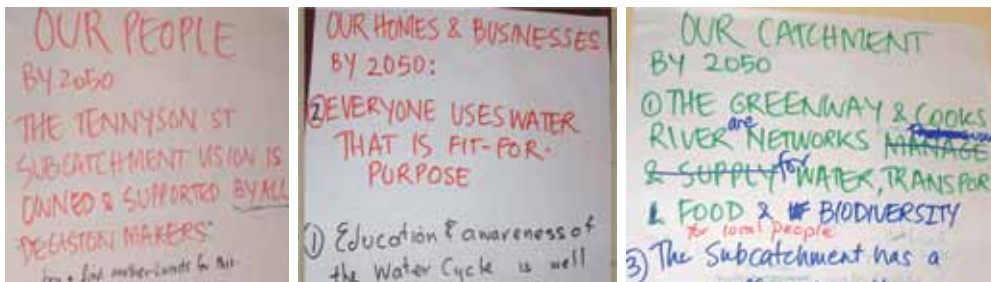 OUR PEOPLE
BY 2050
THE TENNYSON ST
SUBCATCHMENT VISION IS
OWNED & SUPPORTED BY ALL
DECISION MAKERS"
OUR HOMES & BUSINESSES
BY 2050:
② EVERYONE USES WATER
THAT IS FIT-FOR-
PURPOSE
① Education & awareness of
the Water Cycle is well
OUR CATCHMENT
BY 2050
① THE GREENWAY & COOKS
RIVER are NETWORKS MANAGE
& SUPPLY for WATER, TRANSPOR
& FOOD & BIODIVERSITY
for local people
③ The Subcatchment has a